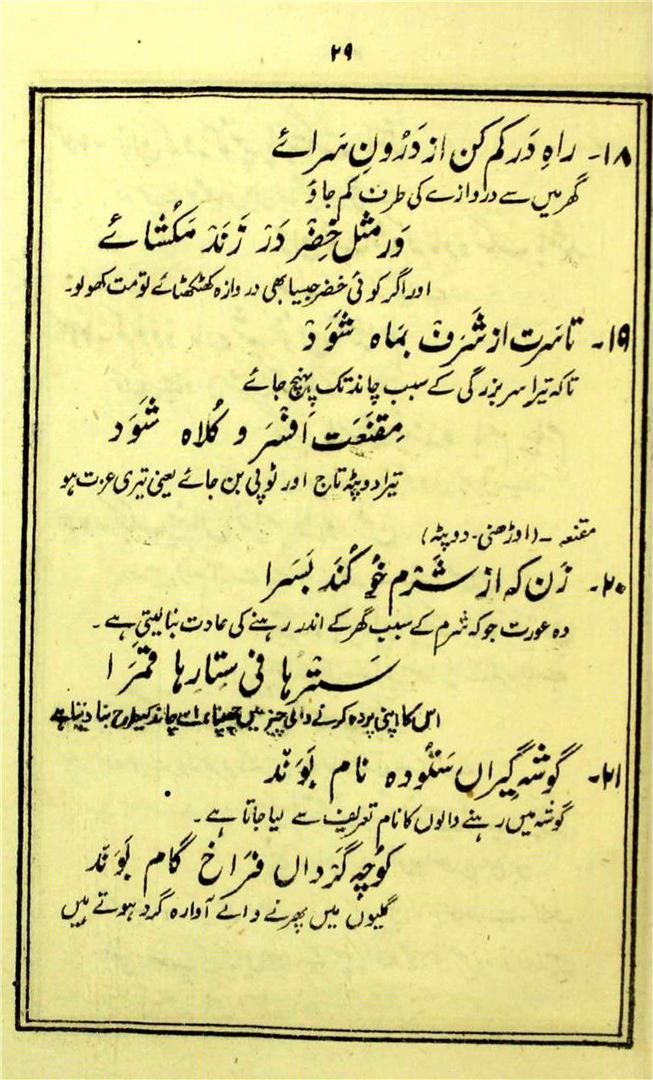 ۲۹
۱۸۔ راہِ دَر کم کن از دَرُونِ سَرائے
گھر میں سے دروازے کی طرف کم جاؤ
وَر مثلِ خِضْر دَر زَنَد مَکُشائے
اور اگر کوئی خضر جیسا بھی دروازہ کھٹکھٹائے تو مت کھولو۔
۱۹۔ تا سَرت از شَرَف بمَاہ شَوَد
تاکہ تیرا سر بزرگی کے سبب چاند تک پہنچ جائے
مِقنَعَت اَفْسَر و کُلاہ شَوَد
تیرا دوپٹہ تاج اور ٹوپی بن جائے یعنی تیری عزت ہو
مقنعہ ۔ (اوڑھنی۔ دوپٹہ)
۲۰۔ زَن کہ از شَرْم خُو کُنَد بَسَرا
وہ عورت جو کہ شرم کے سبب گھر کے اندر رہنے کی عادت بنا لیتی ہے۔
سَتْرُہا فی سِتارِہا قمَرَا
اس کا اپنی پردہ کرنے والی چیز میں چھپنا اسے چاند کیطرح بنا دیتا ہے
۲۱۔ گوشہ گیراں سَتُودہ نام بَوَنْد
گوشہ میں رہنے والوں کا نام تعریف سے لیا جاتا ہے۔
کُوچہ گَرداں فَرَاخ گام بَوَنْد
گلیوں میں پھرنے والے آوارہ گرد ہوتے ہیں